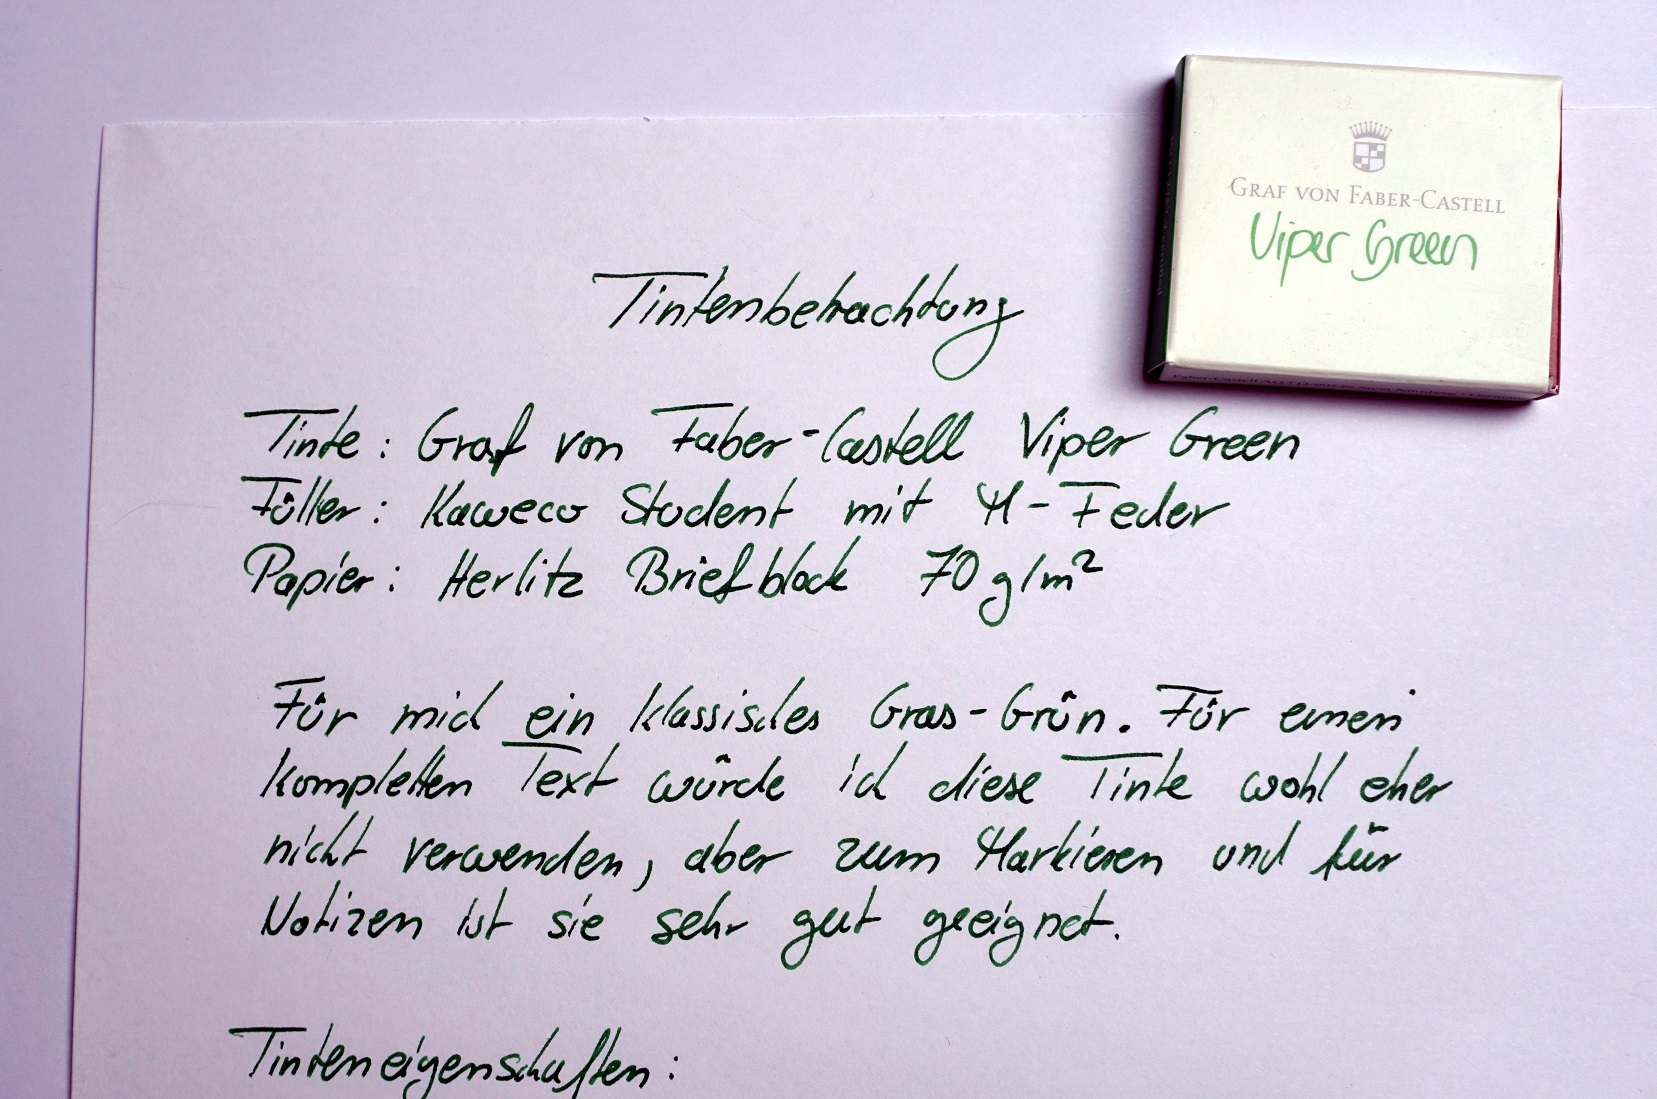 GRAF VON FABER-CASTELL
Viper Green
Tintenbetrachtung
Tinte: Graf von Faber-Castell Viper Green
Füller: Kaweco Student mit M-Feder
Papier: Herlitz Briefblock 70 g/m²
Für mich ein klassisches Gras-Grün. Für einen
kompletten Text würde ich diese Tinte wohl eher
nicht verwenden, aber zum Markieren und für
Notizen ist sie sehr gut geeignet.
Tinteneigenschaften: